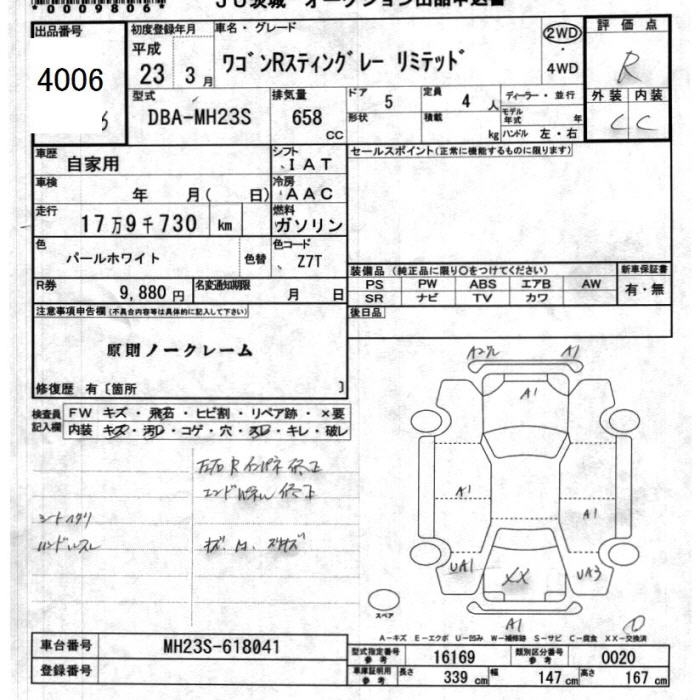 JU茨城 オークション出品申込書
出品番号 4006
初度登録年月 平成 23 3月
車名・グレード ワゴンRスティングレー リミテッド
2WD ・ 4WD
評価点 R
外装 内装
C C
型式 DBA-MH23S
排気量 658 CC
ドア 5 定員 4人 ディーラー・並行
形状 積載 kg モデル年式 年 ハンドル 左・右
車歴 自家用
シフト IAT
セールスポイント(正常に機能するものに限ります)
車検 年 月( 日)
冷房 AAC
走行 17万9千730 km
燃料 ガソリン
色 パールホワイト 色替
色コード Z7T
装備品 (純正品に限り〇をつけてください) 新車保証書
PS PW ABS エアB AW 有・無
SR ナビ TV カワ
R券 9,880円 名変通知期限 月 日
後日品
注意事項申告欄(不具合内容等は具体的に記入して下さい)
原則ノークレーム
修復歴 有〔箇所 〕
検査員記入欄 FW キズ・飛石・ヒビ割・リペア跡・×要
内装 キズ・汚レ・コゲ・穴・スレ・キレ・破レ
エンドパネル
シートヘタリ
ハンドルスレ
A1
A1
A1
A1
UA1
XX
UA3
A1
スペア
A-キズ E-エクボ U-凹み W-補修跡 S-サビ C-腐食 XX-交換済
車台番号 MH23S-618041
型式指定番号 参考 16169 類別区分番号 参考 0020
登録番号
車庫証明用 参考 長さ 339 cm 幅 147 cm 高さ 167 cm